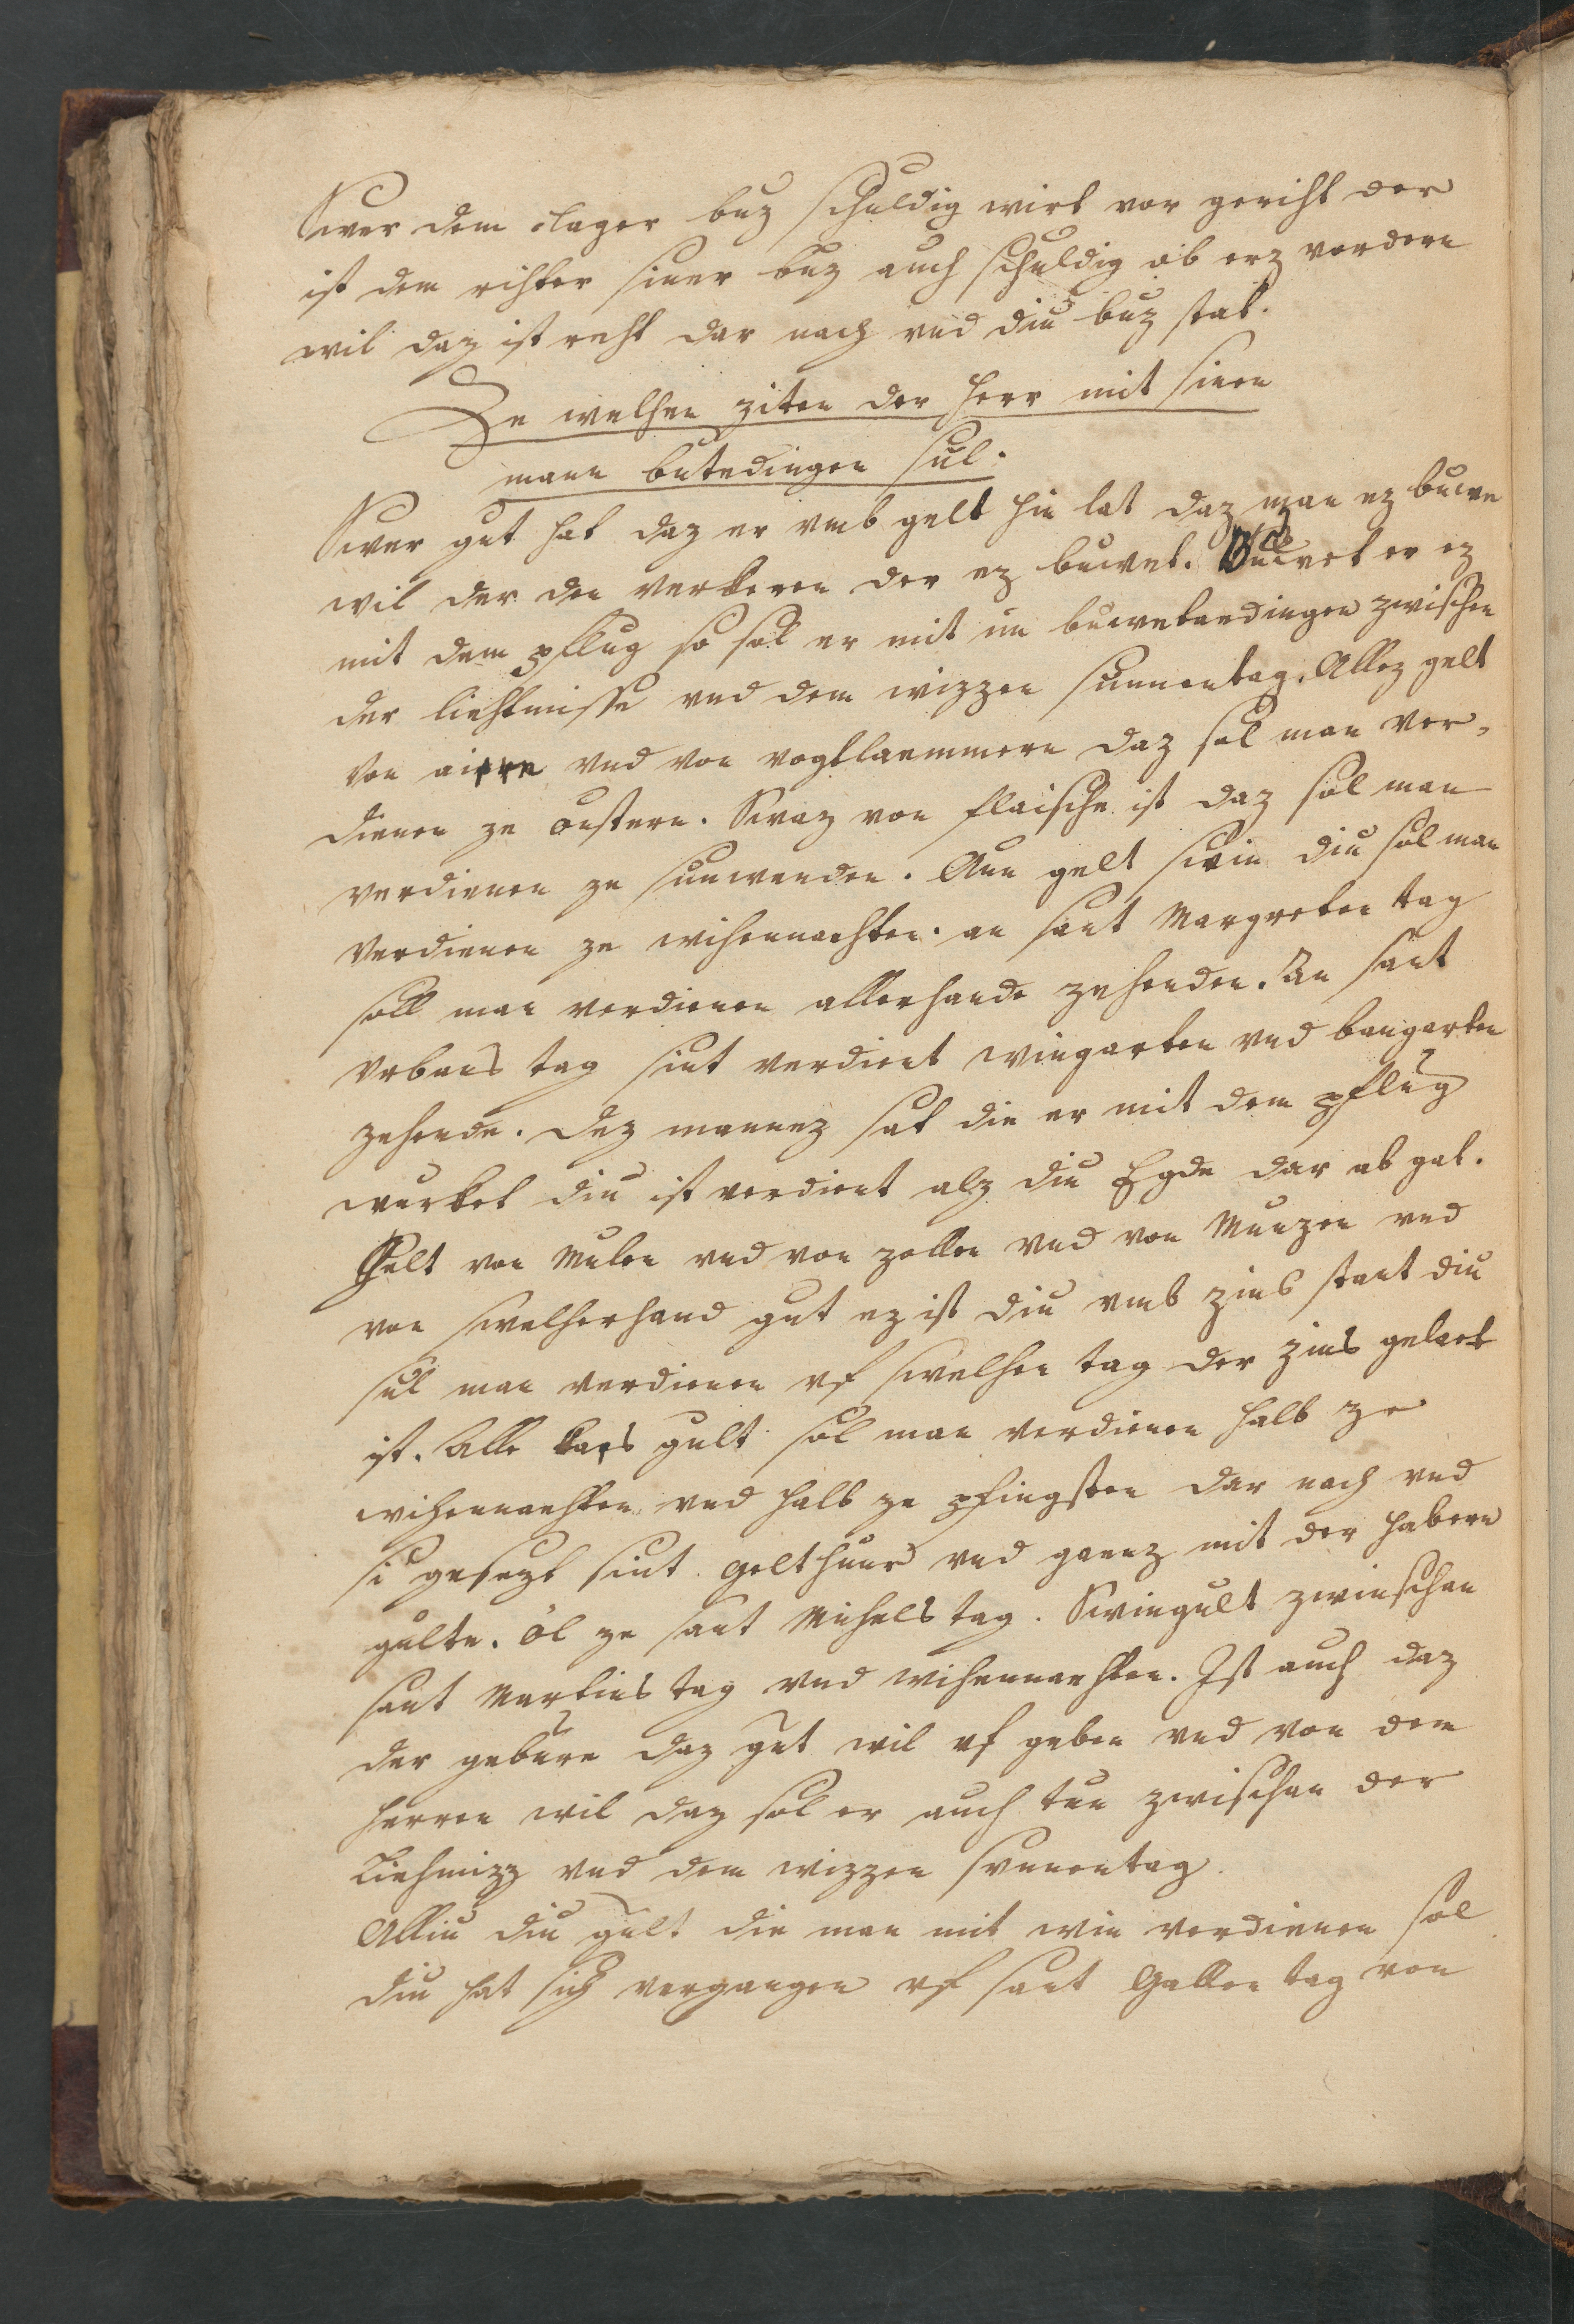 Swer dem clager buz schuldig wirt vor geriht der
ist dem rihter siner buz auch schuldig ob erz vordern
wil daz ist reht dar nach vnd diu buz stat.
Ze welhen ziten der herr mit sinen
mann butedingen sul.
Swer gut hat daz er vmb gelt hin lat daz man ez buwe
wil der den verkeren der ez buwet. Buwet er ez
mit dem pflug so sol er mit im buwetaedingen zwischen
der liehtmisse vnd dem wizzen sunnentag. Allez gelt
von aiern vnd von vogtlaemmern daz sol man ver-
dienen ze oustern. Swaz von flaische ist daz sol man
verdienen ze sunwenden. Aun gelt swin diu sol man
verdienen ze wihennaehten. an sant Margreten tag
soll man verdienen allerhande zehenden. An sant
Vrbans tag sint verdient wingarten vnd baugarten
zehende. Dez mannez sat die er mit dem pflug
wurket diu ist verdient alz diu Egde dar ab gat.
Gelt von Mulen vnd von zollen vnd von Munzen vnd
von swelherhand gut ez ist diu vmb zins stant diu
sul man verdienen vf swelhen tag der zins gelaet
ist. Alle kaes gult sol man verdienen halb ze
wihennaehten vnd halb ze pfingsten dar nach vnd
si gesezt sint. gelthuner vnd gaenz mit der habern
gulte. öl ze sant Michels tag. Swingult zwinschen
sant Martins tag vnd wihennaehten. Ist auch daz
der gebure daz gut wil vf geben vnd von dem
herren wil daz sol er auch tun zwischen der
Liehmizz vnd dem wizzen svnnentag.
Alliu diu gult die man mit win verdienen sol
diu hat sich vergangen vf sant Gallen tag von